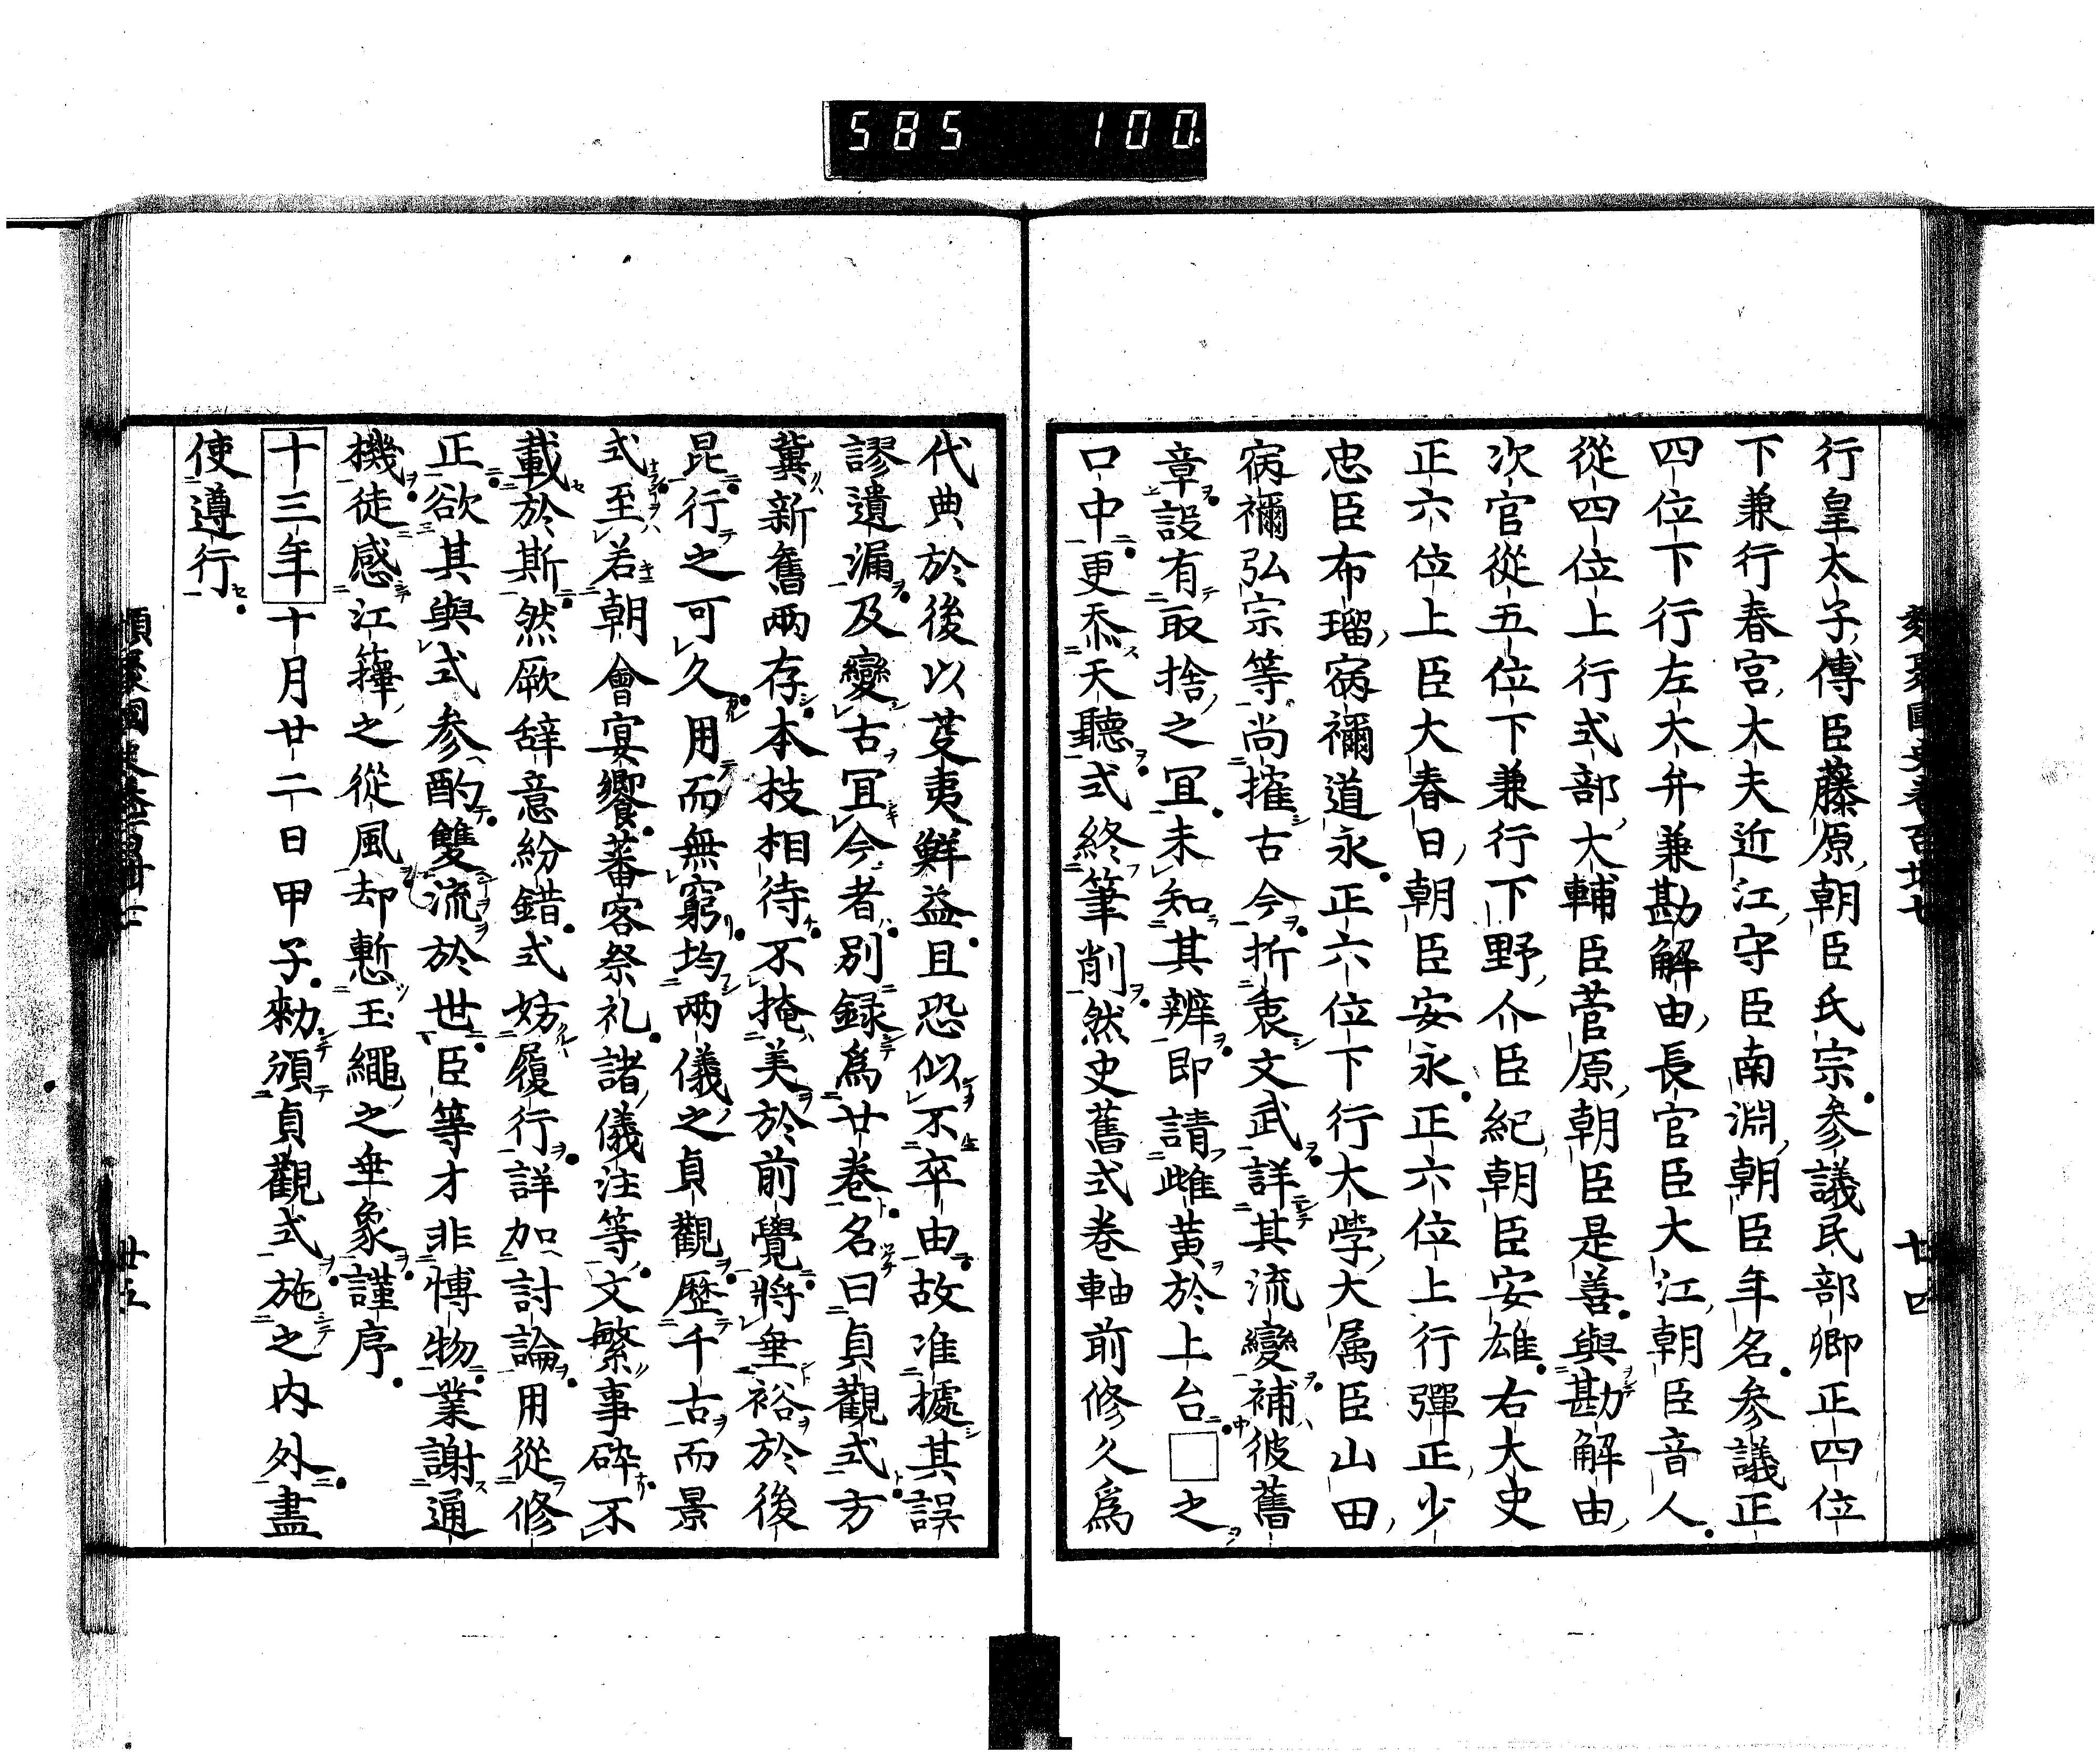 585 100
行皇太子傅臣藤原朝臣氏宗参議民部卿正四位
下兼行春宮大夫近江守臣南淵朝臣年名参議正
四位下行左大弁兼勘解由長官臣大江朝臣音人
從四位上行式部大輔臣菅原朝臣是善與勘解由
次官從五位下兼行下野介臣紀朝臣安雄右大史
正六位上臣大春日朝臣安永正六位上行彈正少
忠臣布瑠宿禰道永正六位下行大学大属臣山田
宿禰弘宗等尚搉古今折衷文武詳其流變補彼舊
章設有取捨之冝未知其辨即請雌黄於上台□之
口中更忝天聽式終筆削然史舊式巻軸前修久為
代典於後以芟夷鮮益且恐似不卒由故准據其誤
謬遺漏及變古冝今者別録為廿巻名曰貞觀式方
冀新舊兩存本技相待不掩美於前覺將垂裕於後
昆行之可久用而無窮均兩儀之貞觀歴千古而景
式至若朝會宴饗蕃客祭礼諸儀注等文繁事碎不
載於斯然厥辞意紛錯式妨履行詳加討論用從修
正欲其與式参酌雙流於世臣等才非博物業謝通
機徒感江籜之從風却慙玉繩之垂象謹序
十三年十月廿二日甲子勑頒貞觀式施之内外盡
使遵行